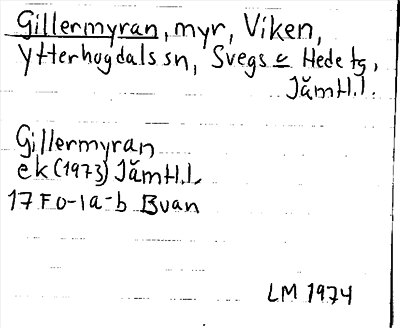 Gillermyran, myr, Viken,
Ytterhogdals sn, Svegs o Hede tg,
Jämtl.l.
Gillermyran
ek (1973) Jämtl.l.
17F 0-1a-b Buan
LM 1974